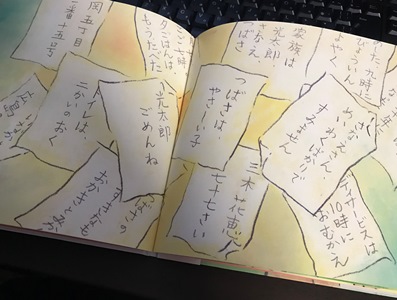 のた 九時に
びょういん
よやく
家族は
光太郎
さかえ
つばさ
さかえさん
めいわくばかりで
すみません
つばさは、
やさーい子
三木 花恵
七十七さい
デイサービスは
10時に
おむかえ
七時
夕ごはんは
もうたべた
光太郎
ごめんね
岡五丁目
一番十五号
トイレは、
二かいのおく
つばさの